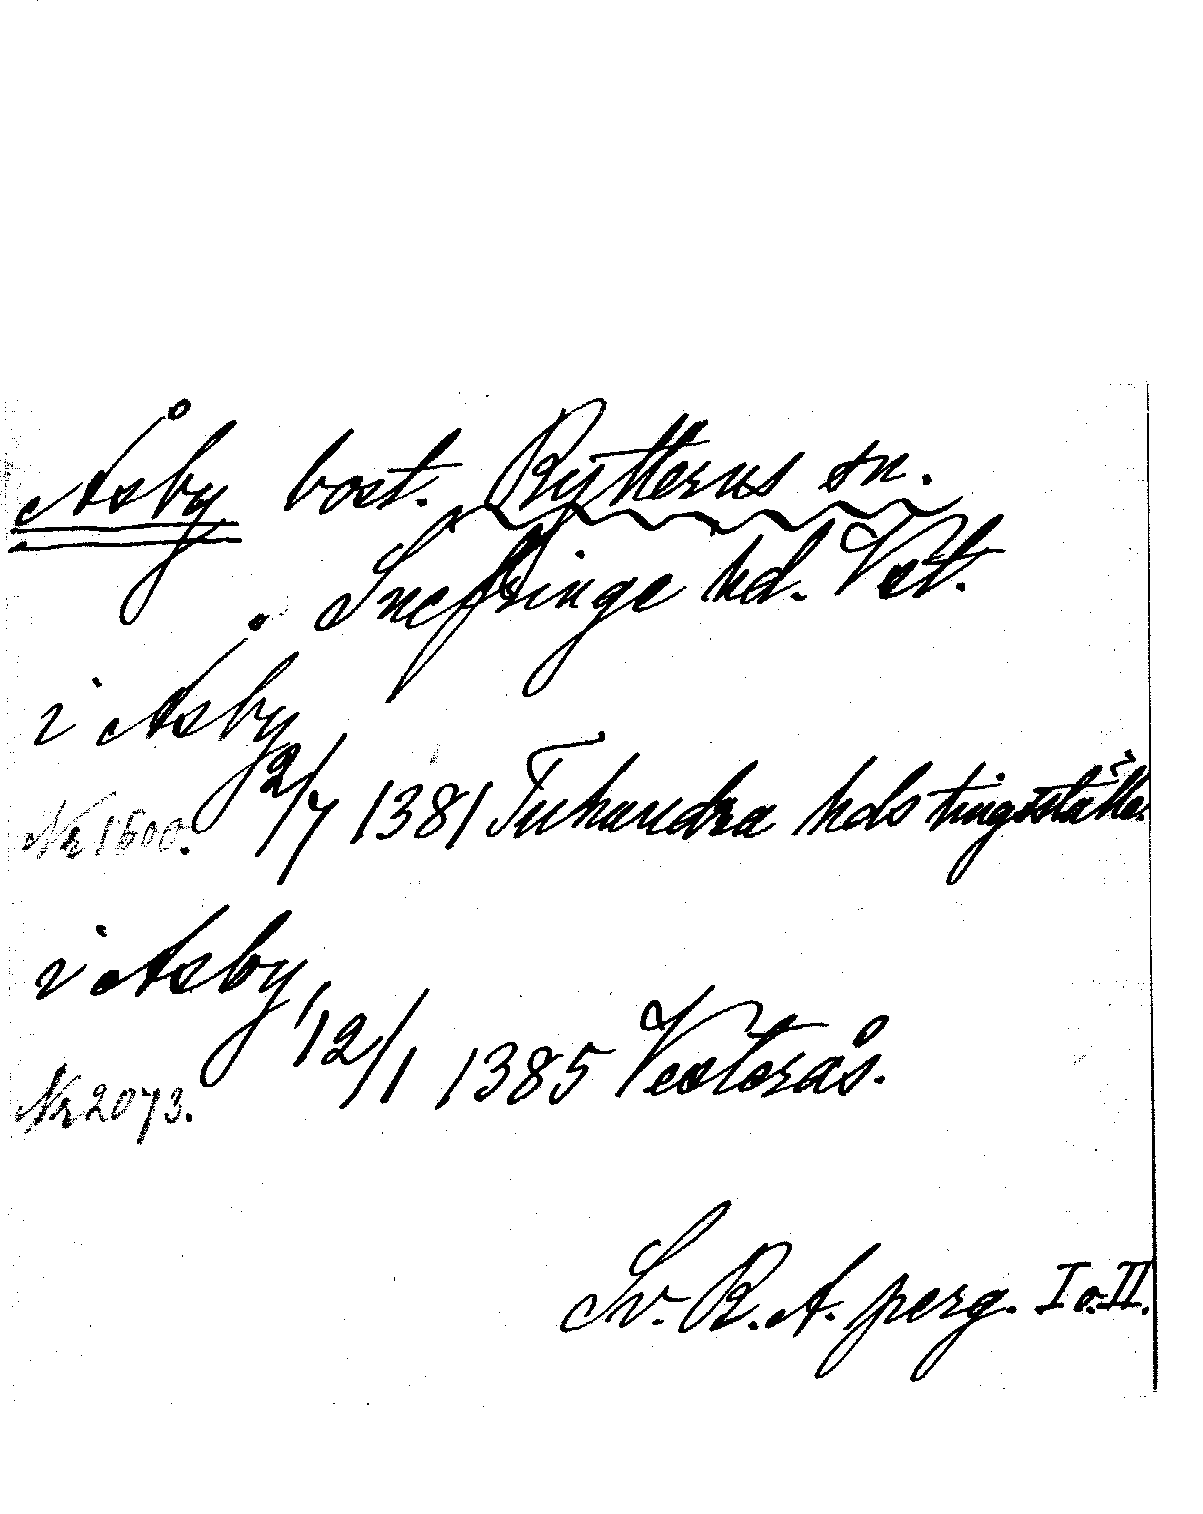 Åsby bost. Rytterns sn.
Snefringe hd. Vst.
i Åsby
2/7 1381 Tuhundra hds tingsställe.
Nr 1500.
i Asby,
12/1 1385 Vesterås.
Nr 2073.
Sv. R. A. perg. I o. II.